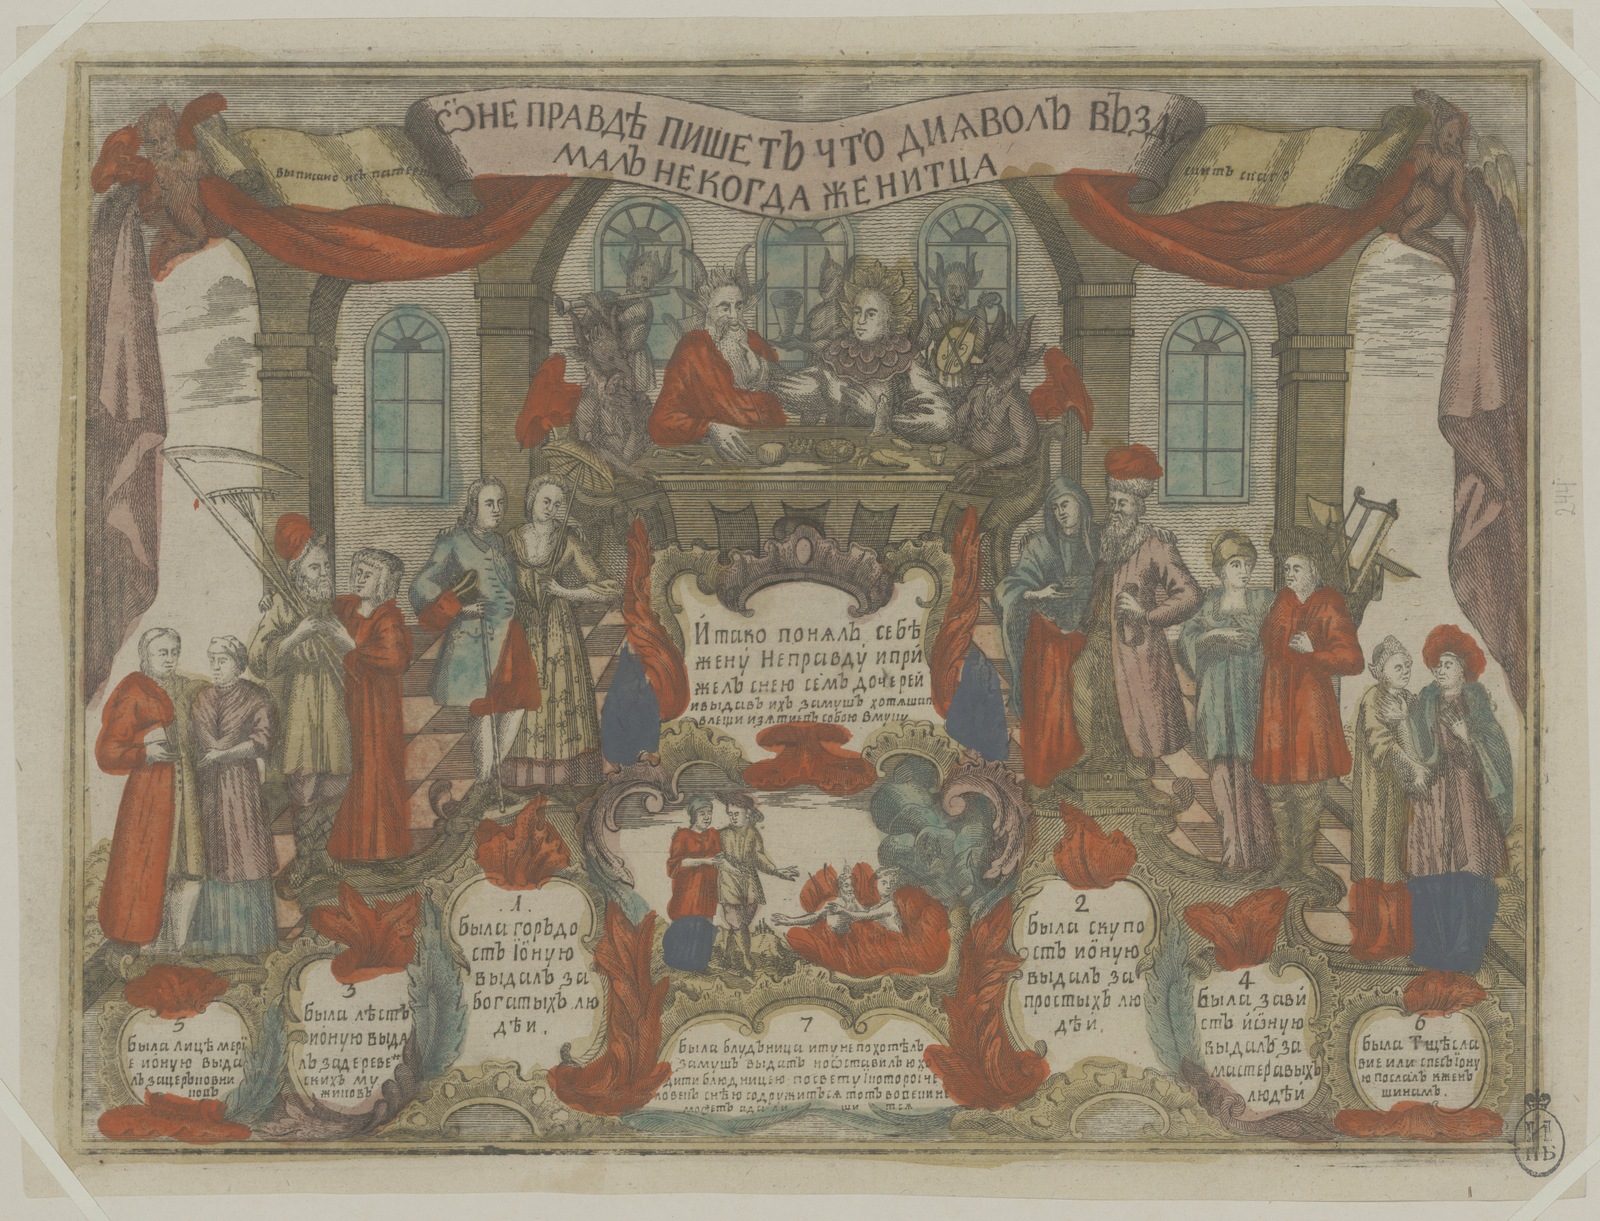 Ѿ НЕ ПРАВДѢ ПИШЕТЪ ЧТО ДИѦВОЛЪ ВЪЗДИ
МАЛЪ НЕКОГДА ЖЕНИТЦА
выписано исъ
Й тако понѧлъ себѣ
женȣ́ Неправдȣ́ и при́
желъ снею семъ дочерей
ивыдавъ ихъ замушъ
собою вмуцу
1.
была горъдо
стъ Iо́ную
выдалъ за
богатыхъ лю
дѣи.
2
была скупо
сть ио́ную
выдалъ за
простыхъ лю
дѣи.
3
была лѣсть
ио́ную выда
лъ задереве
скихъ му
жиковъ
4
была зави́
стъ ио́ную
выдалъ за
мастеравыхъ
людѣи́
5
была лицѣмерї
е ио́ную выда
лъ зацеръковни
ковъ
6
была Тщѣсла
вие или спесь ио́ну
ю послалъ кжен
шинамъ.
7
была блудъница иту непохотѣлъ
замушъ выдать ноѡставилъ ю хо
дити блюдницею посвету
244